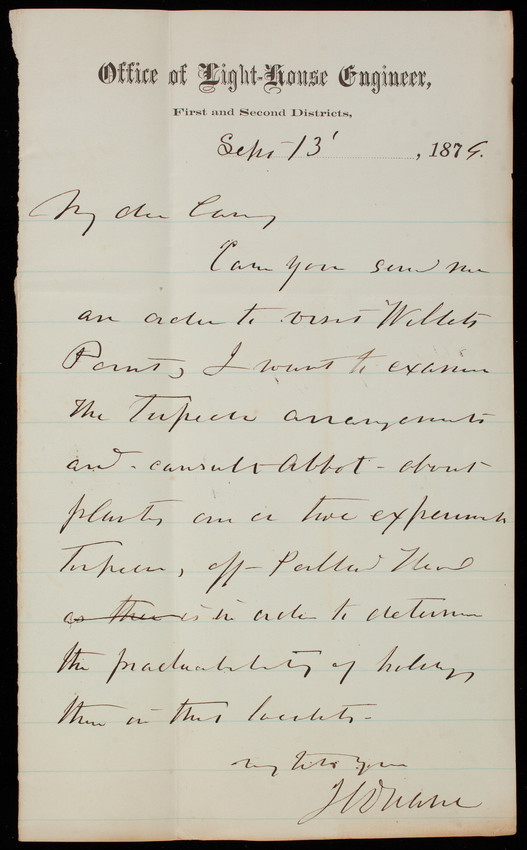 Office of Light-House Engineer,
First and Second Districts,
Sept 13, 1879.
My dear Casey
Can you send me
an order to visit Willets
Point, I want to examine
the Torpedo arrangements
and consult Abbot - about
planting one or two experimental
Torpedoes, off Portland Head
as there is in order to determine
the practicability of holding
them in that locality -
very truly yours
J C Duane